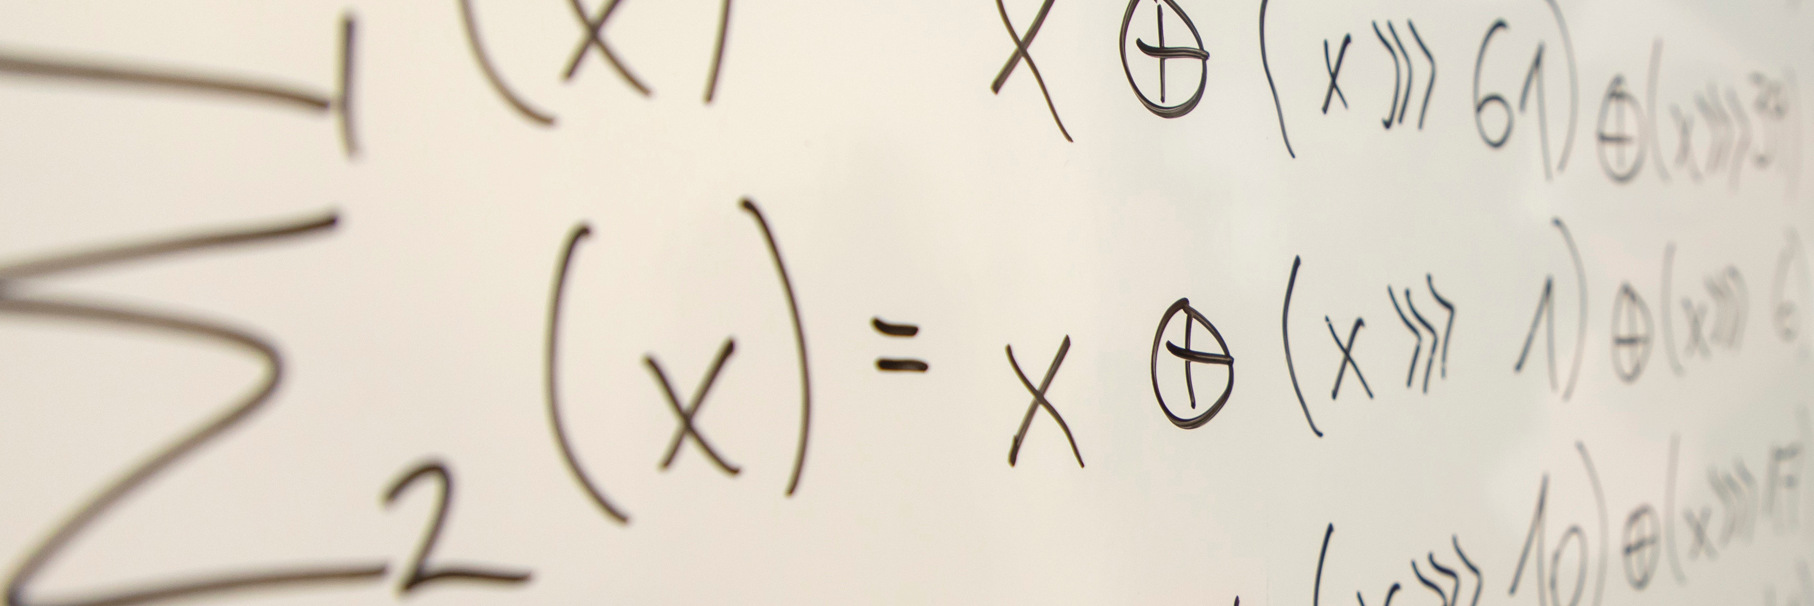 Σ₁(x) x ⊕ (x ⋙ 61) ⊕ (x ⋙ 39)
Σ₂(x) = x ⊕ (x ⋙ 1) ⊕ (x ⋙ 6
(x ⋙ 10) ⊕ (x ⋙